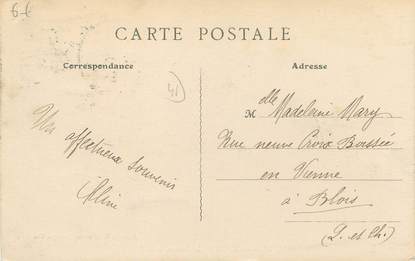 6-€
CARTE POSTALE
Correspondance
Adresse
41
Un
affectueux souvenir
Aline
Melle Madeleine Mary
Rue neuve Croix Boissée
en Vienne
à Blois
(L. et Ch.)